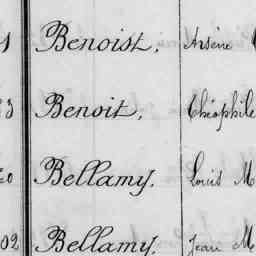 1 Benoist, Arsène
3 Benoit, Théophile
20 Bellamy, Louis M
02 Bellamy, Jean M